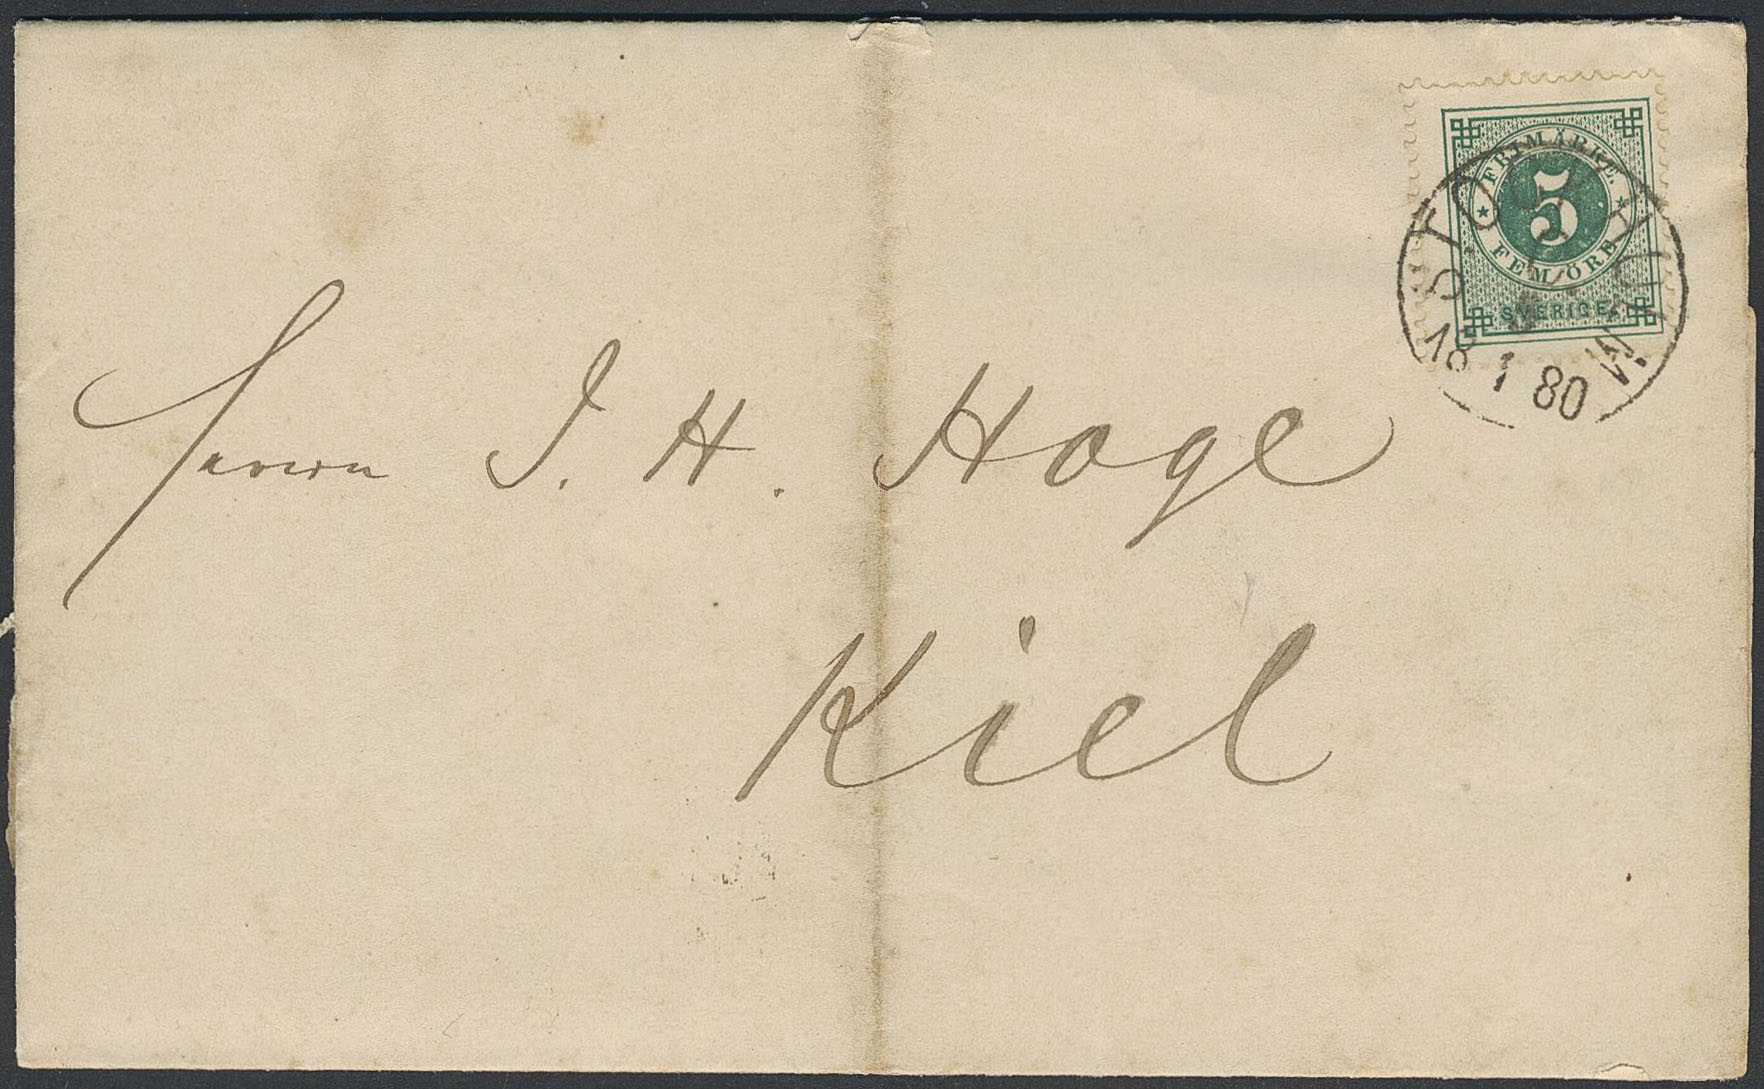 FRIMÄRKE.
5
FEM ÖRE
SVERIGE.
STOCKHOLM.
18 1 80
Herrn J. H. Hage
Kiel